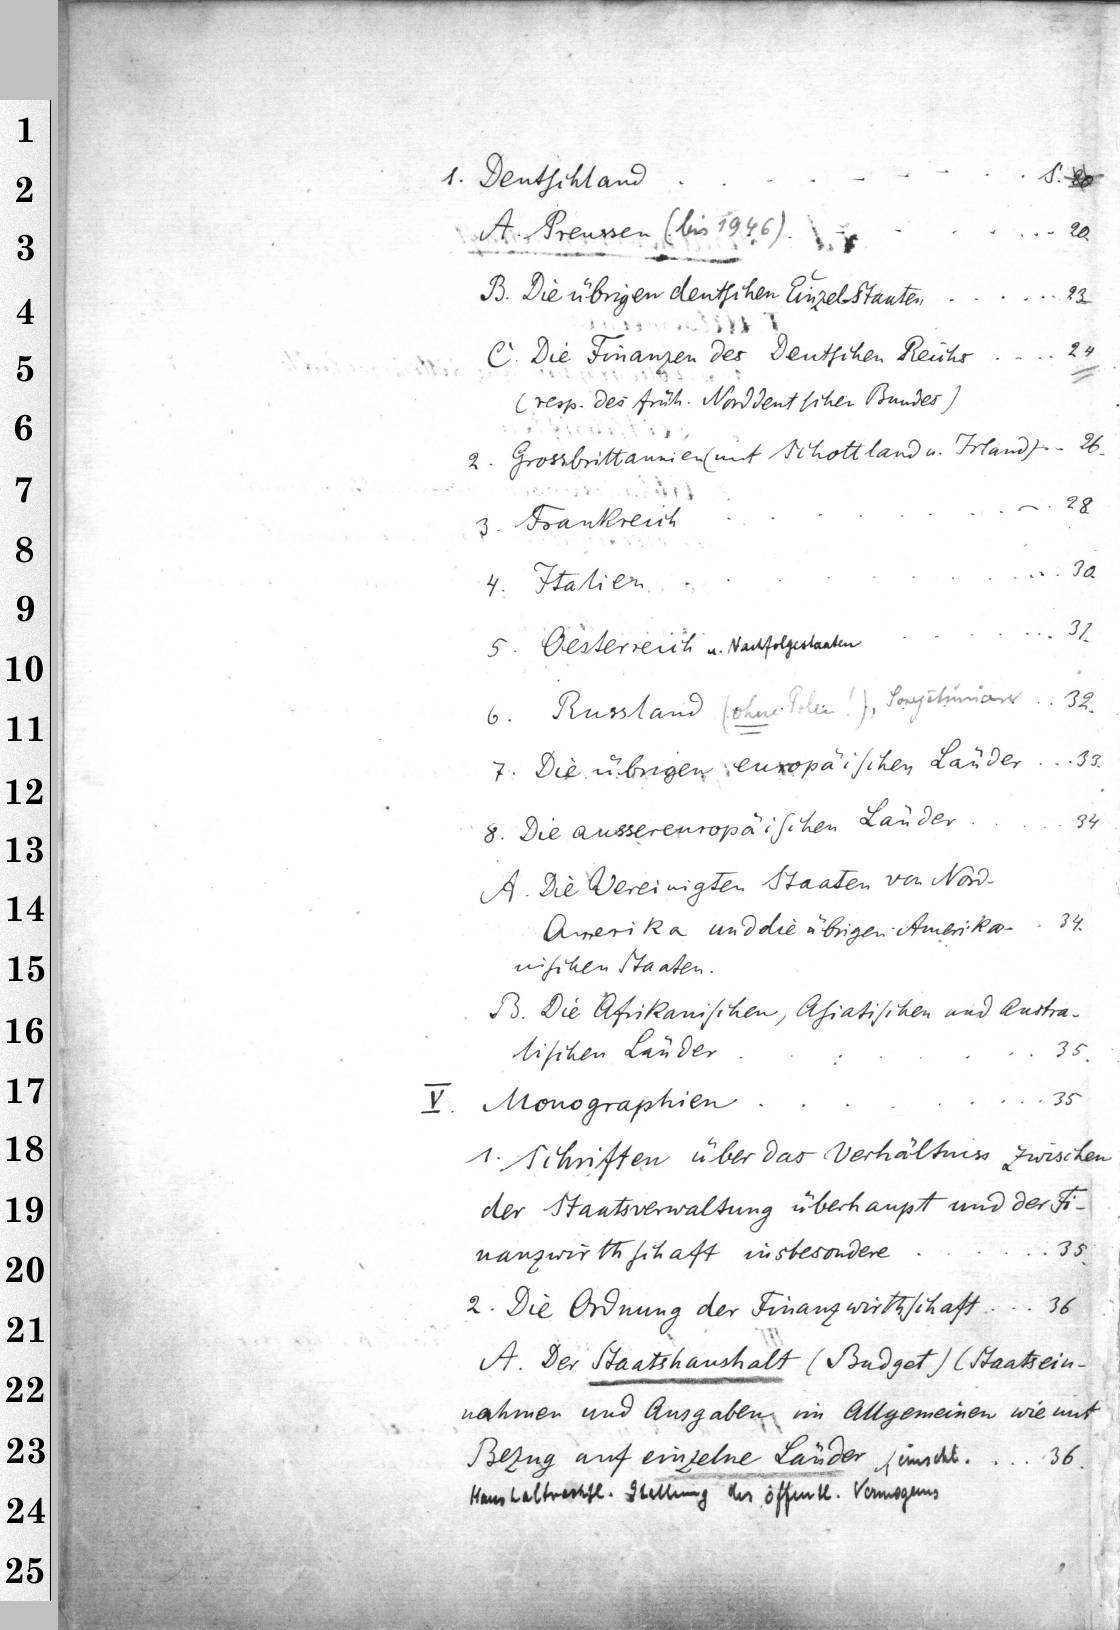 1
2
3
4
5
6
7
8
9
10
11
12
13
14
15
16
17
18
19
20
21
22
23
24
25
1. Deutschland . . . . . . . . . S.
A. Preussen (bis 1946) . . . . . . 20
B. Die übrigen deutschen Einzel-Staaten . . . . . . 23
C. Die Finanzen des Deutschen Reichs . . . . 24
(resp. des früh. Norddeutschen Bundes)
2. Grossbrittannien (mit Schottland u. Irland) . . 26.
3. Frankreich . . . . . . . . 28
4. Italien . . . . . . . . 30
5. Oesterreich u. Nachfolgestaaten . . . . . . 31
6. Russland (ohne Polen!), Sowjetunion . . 32.
7. Die übrigen europäischen Länder . . . 33.
8. Die aussereuropäischen Länder . . . . . 34
A. Die Vereinigten Staaten von Nord-
Amerika und die übrigen Amerika- . 34.
nischen Staaten.
B. Die Afrikanischen, Asiatischen und Austra-
lischen Länder . . . . . . . 35.
V. Monographien . . . . . . . . 35
1. Schriften über das Verhältniss zwischen
der Staatsverwaltung überhaupt und der Fi-
nanzwirthschaft insbesondere . . . . . . 35
2. Die Ordnung der Finanzwirthschaft . . . 36
A. Der Staatshaushalt (Budget) (Staatsein-
nahmen und Ausgaben im Allgemeinen wie mit
Bezug auf einzelne Länder, einschl. . . . 36.
Stellung des öffentl. Vermögens